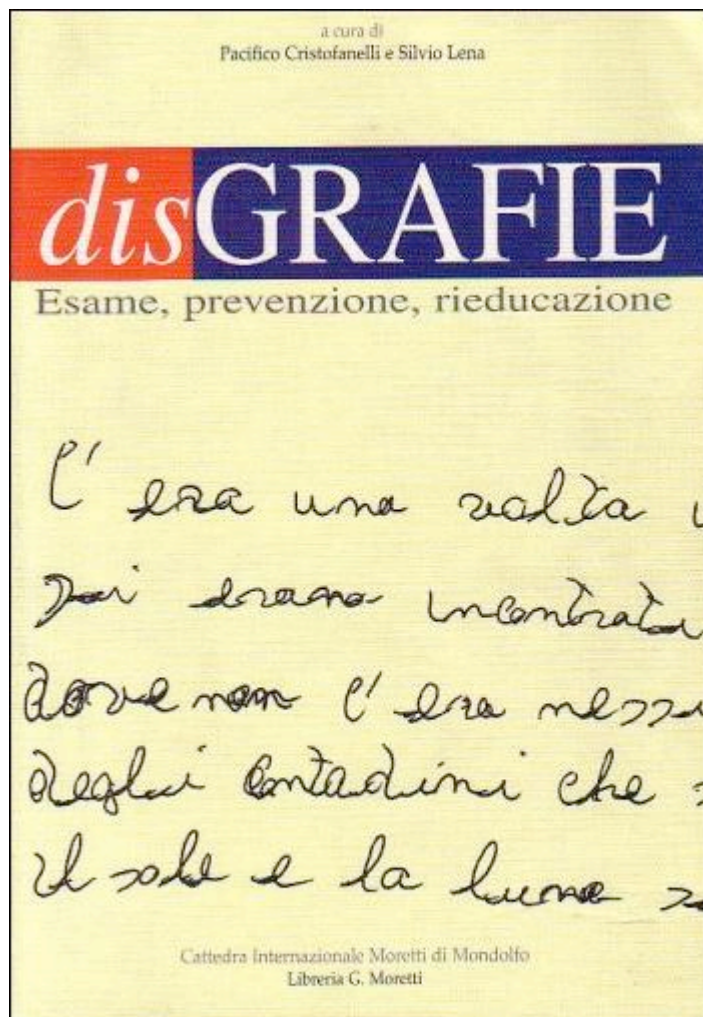 a cura di
Pacifico Cristofanelli e Silvio Lena
disGRAFIE
Esame, prevenzione, rieducazione
C' era una volta u
Poi erano incontrati
dove non c' era nessu
degli contadini che s
il sole e la luna s
Cattedra Internazionale Moretti di Mondolfo
Libreria G. Moretti